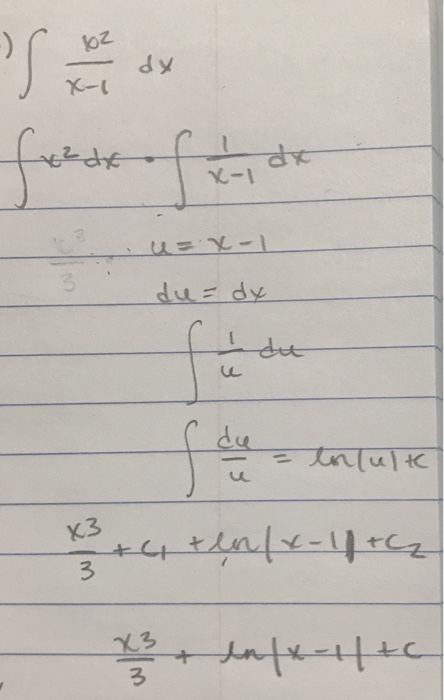 .) ∫ x²/(x-1) dx
∫ x² dx · ∫ 1/(x-1) dx
x³/3 u = x-1
du = dx
∫ 1/u du
∫ du/u = ln|u|+c
x3/3 + c₁ + ln|x-1|+c₂
x3/3 + ln|x-1|+c